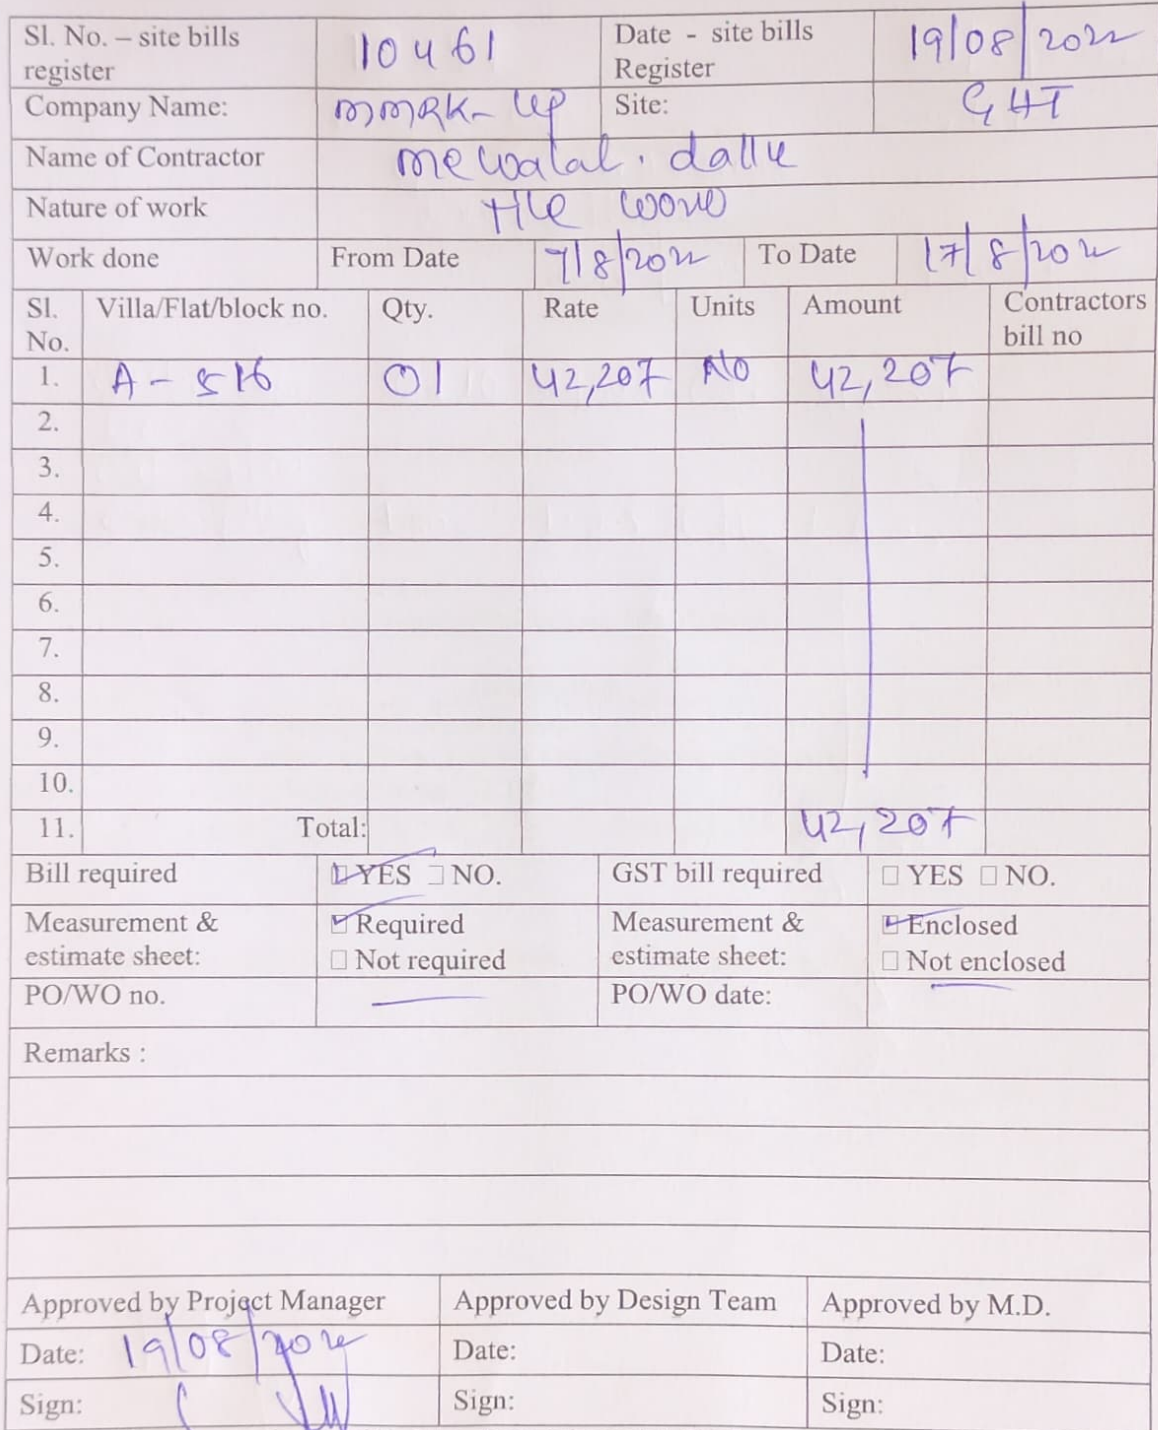 Sl. No. – site bills register 10461 Date - site bills Register 19/08/2022
Company Name: MMRK- LLP Site: GHT
Name of Contractor mewalal. dallu
Nature of work tile work
Work done From Date 7/8/2022 To Date 17/8/2022
Sl. No. Villa/Flat/block no. Qty. Rate Units Amount Contractors bill no
1. A - 516 01 42,207 No 42,207
2.
3.
4.
5.
6.
7.
8.
9.
10.
11. Total: 42,207
Bill required YES NO. GST bill required YES NO.
Measurement & estimate sheet: Required Measurement & estimate sheet: Enclosed
Not required Not enclosed
PO/WO no. PO/WO date:
Remarks :
Approved by Project Manager Approved by Design Team Approved by M.D.
Date: 19/08/2022 Date: Date:
Sign: Sign: Sign: